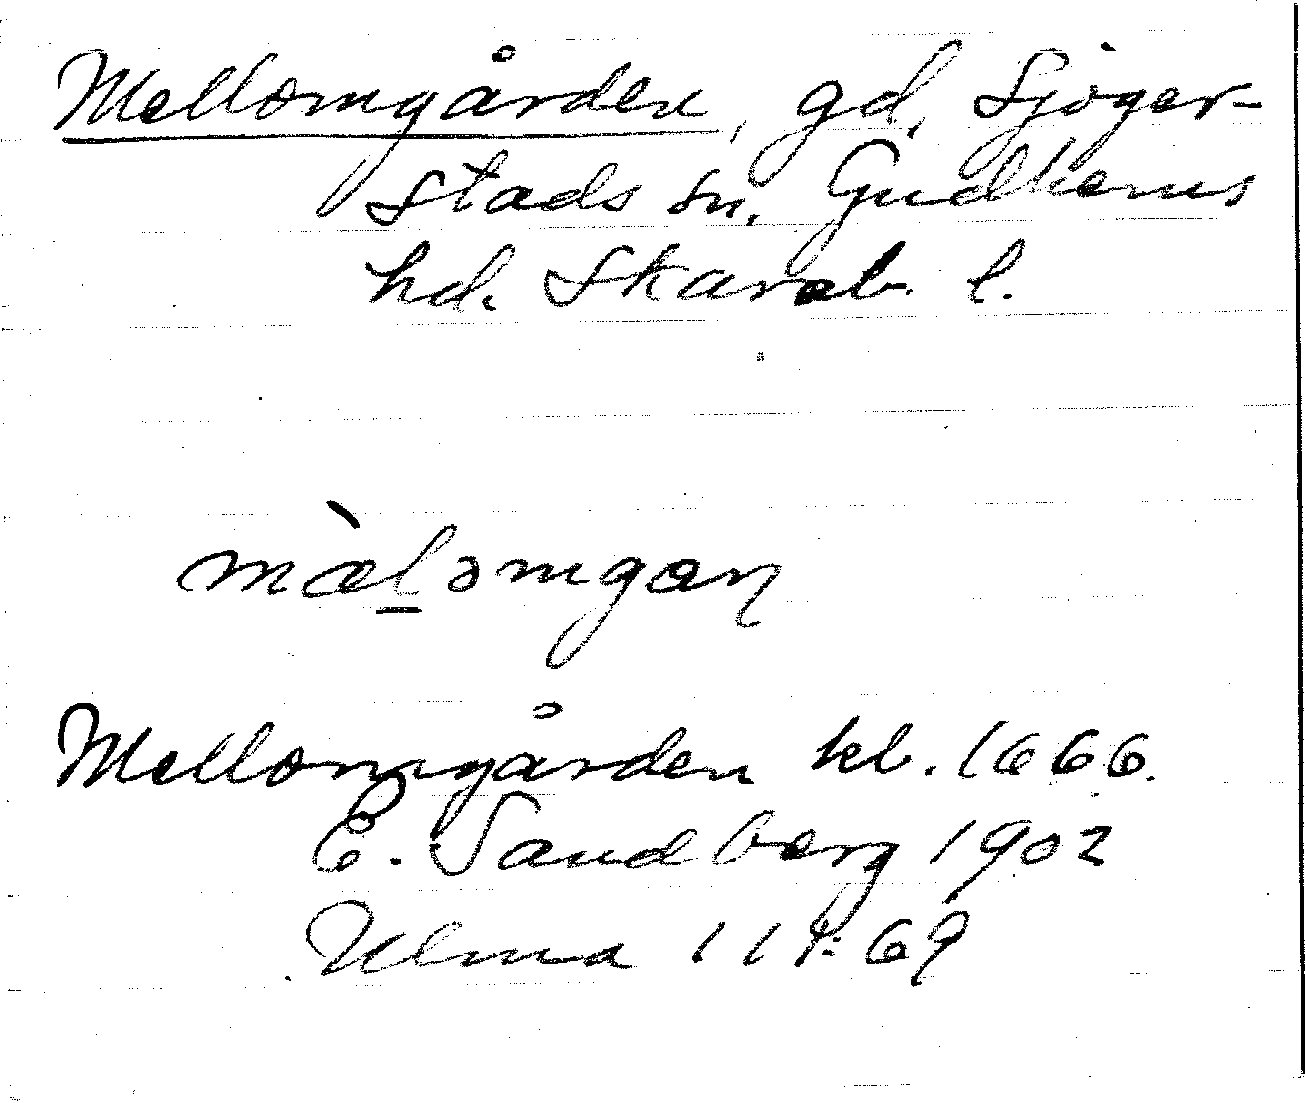 Mellomgården, gd, Sjöger-
stads sn. Gudhems
hd. Skarab. l.
mæ̀l̲ɔmgaɳ
Mellomgården kb. 1666.
E. Sandberg 1902
Ulma 111:69